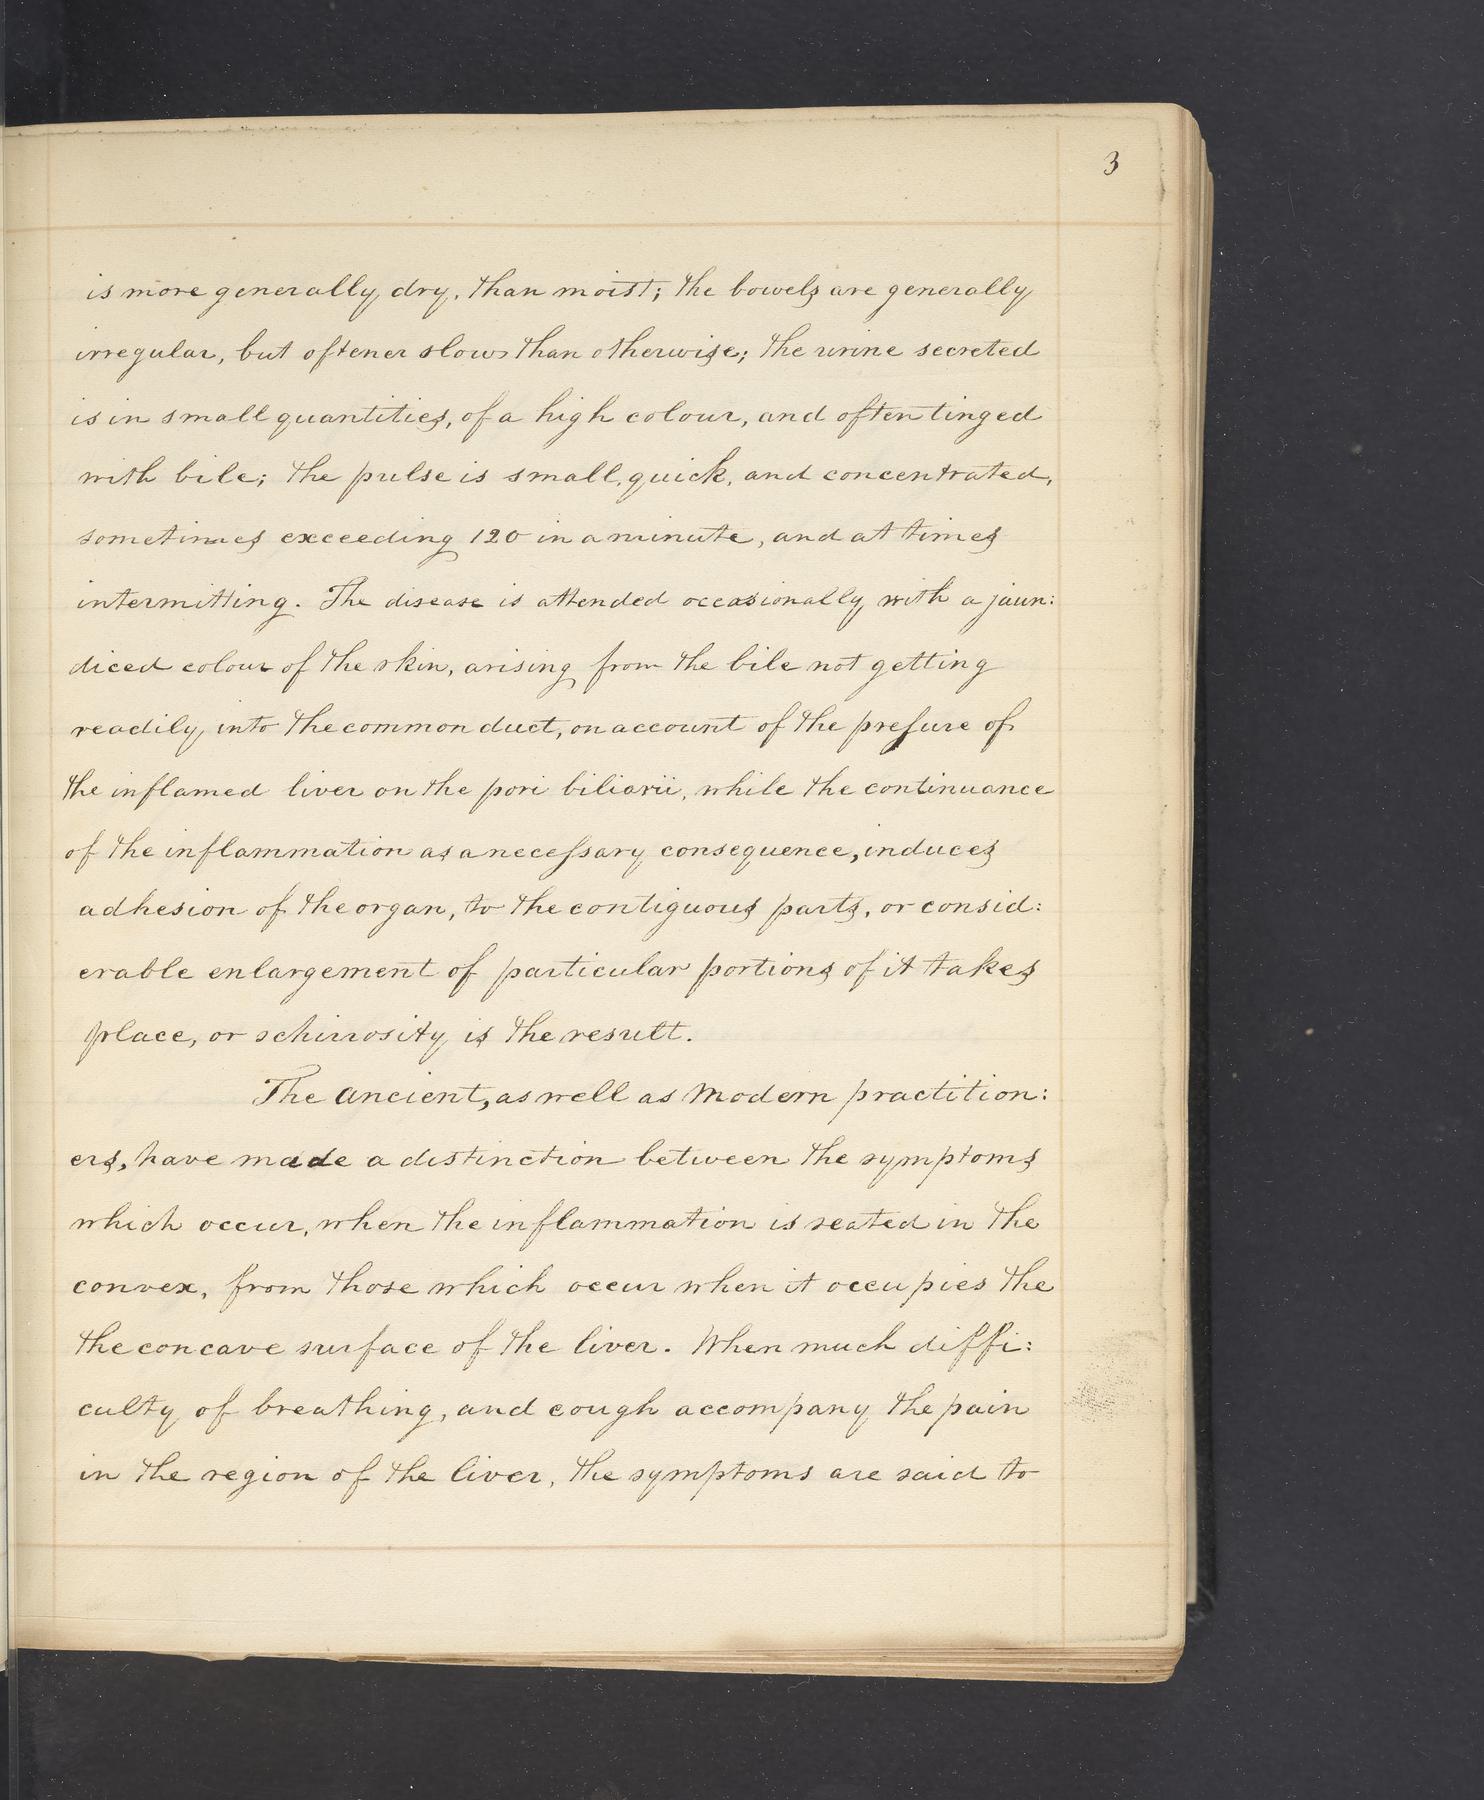 3
is more generally dry, than moist; the bowels are generally
irregular, but oftener slow than otherwise; the urine secreted
is in small quantities, of a high colour, and often tinged
with bile; the pulse is small, quick, and concentrated,
sometimes exceeding 120 in a minute, and at times
intermitting. The disease is attended occasionally with a jaun:
diced colour of the skin, arising from the bile not getting
readily into the common duct, on account of the preſsure of
the inflamed liver on the pori biliarii, while the continuance
of the inflammation as a neceſsary consequence, induces
adhesion of the organ, to the contiguous parts, or consid:
erable enlargement of particular portions of it takes
place, or schirrosity is the result.
The Ancient, as well as Modern practition:
ers, have made a distinction between the symptoms
which occur, when the inflammation is seated in the
convex, from those which occur when it occupies the
the concave surface of the liver. When much diffi:
culty of breathing, and cough accompany the pain
in the region of the liver, the symptoms are said to